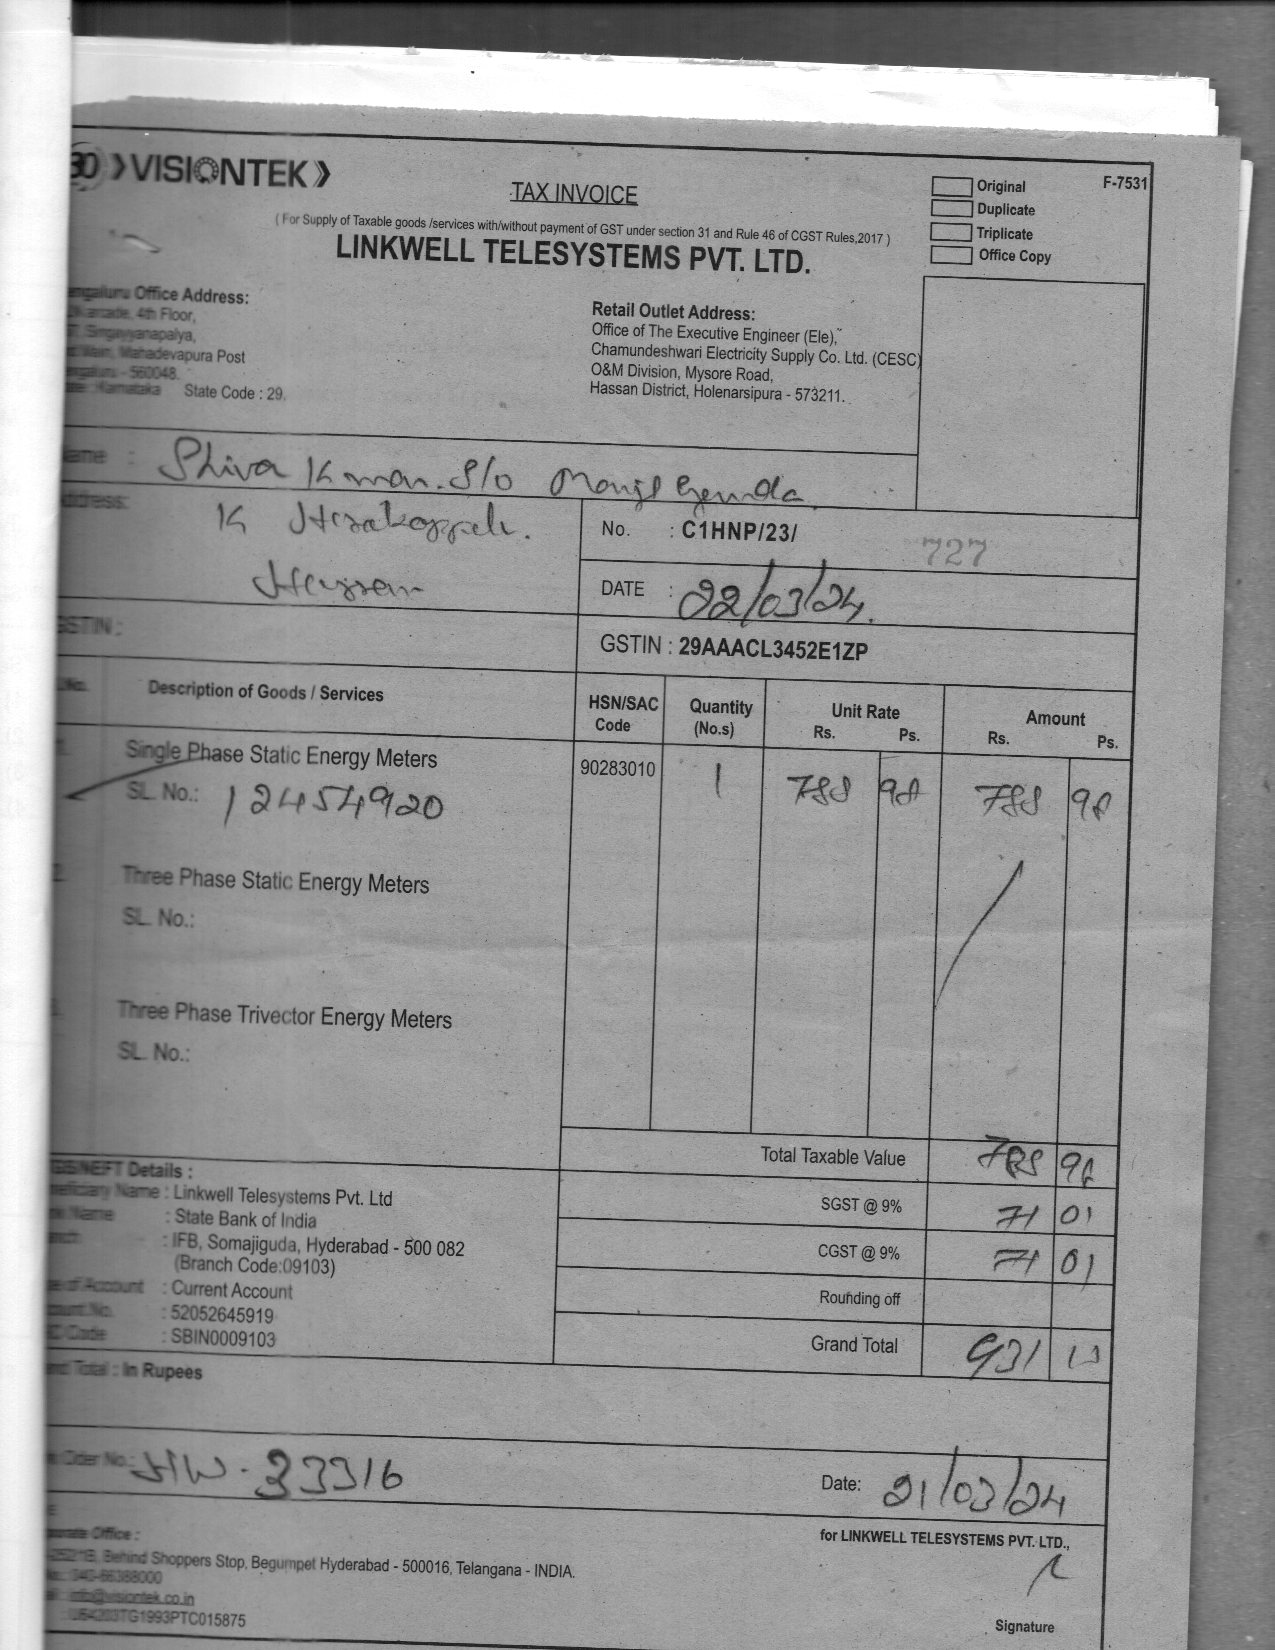 30 VISIONTEK
TAX INVOICE
Original
F-7531
Duplicate
Triplicate
Office Copy
( For Supply of Taxable goods /services with/without payment of GST under section 31 and Rule 46 of CGST Rules,2017 )
LINKWELL TELESYSTEMS PVT. LTD.
Office Address:
4th Floor,
Singayyanapalya,
Mahadevapura Post
- 560048.
Karnataka State Code : 29.
Retail Outlet Address:
Office of The Executive Engineer (Ele),
Chamundeshwari Electricity Supply Co. Ltd. (CESC)
O&M Division, Mysore Road,
Hassan District, Holenarsipura - 573211.
Name : Shiva Kumar. S/o
Address: K
Hassan
No. : C1HNP/23/ 727
DATE : 22/03/24.
GSTIN :
GSTIN : 29AAACL3452E1ZP
Description of Goods / Services HSN/SAC Code Quantity (No.s) Unit Rate Rs. Ps. Amount Rs. Ps.
1. Single Phase Static Energy Meters 90283010 1 788 98 788 98
SL. No.: 12454920
2. Three Phase Static Energy Meters
SL. No.:
3. Three Phase Trivector Energy Meters
SL. No.:
Total Taxable Value 788 98
SGST @ 9% 71 01
CGST @ 9% 71 01
Rounding off
Grand Total 931
NEFT Details :
Name : Linkwell Telesystems Pvt. Ltd
Name : State Bank of India
: IFB, Somajiguda, Hyderabad - 500 082
(Branch Code:09103)
of Account : Current Account
: 52052645919
Code : SBIN0009103
Total : In Rupees
Order No.: HW - 33316
Date: 21/03/24
for LINKWELL TELESYSTEMS PVT. LTD.,
Office :
Behind Shoppers Stop, Begumpet Hyderabad - 500016, Telangana - INDIA.
040-66388000
info@visiontek.co.in
TG1993PTC015875
Signature